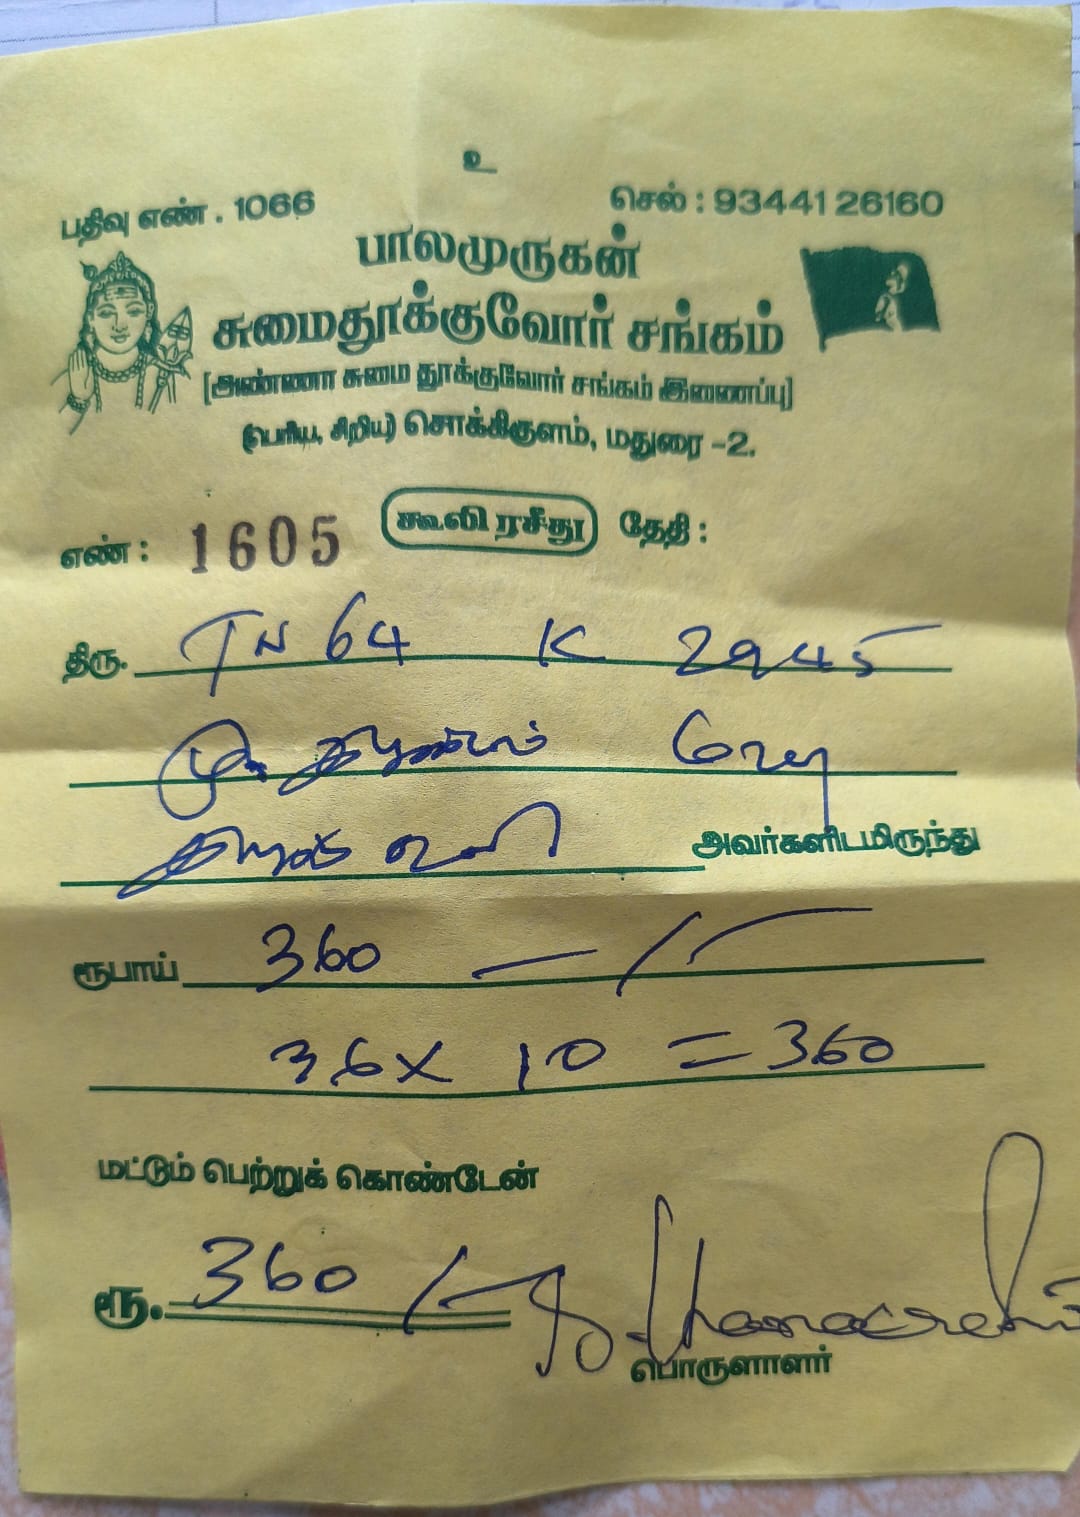 உ
பதிவு எண் . 1066 செல் : 93441 26160
பாலமுருகன்
சுமைதூக்குவோர் சங்கம்
[அண்ணா சுமை தூக்குவோர் சங்கம் இணைப்பு]
(பெரிய, சிறிய) சொக்கிகுளம், மதுரை -2.
எண் : 1605 கூலி ரசீது தேதி :
திரு. TN 64 K 2945
அவர்களிடமிருந்து
ரூபாய் 360 —/—
36 x 10 = 360
மட்டும் பெற்றுக் கொண்டேன்
ரூ. 360 /-
பொருளாளர்